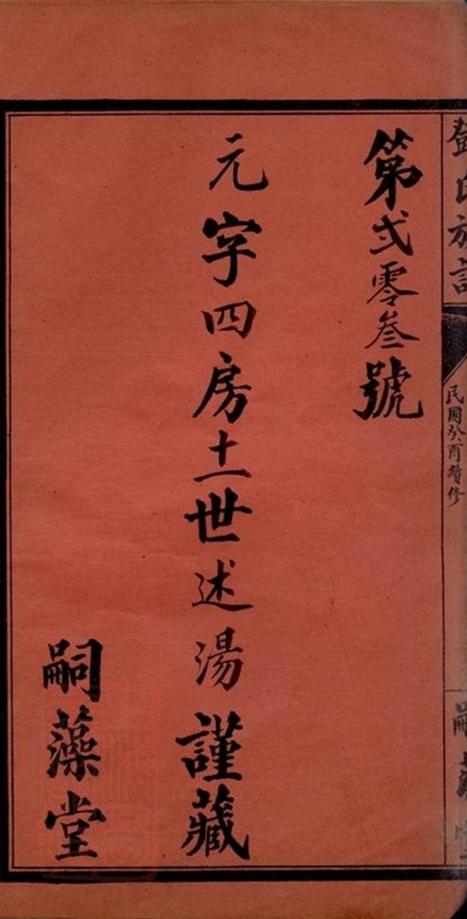 鄧氏族譜
民國癸酉續修
嗣藻堂
第弍零叁號
元字四房十一世述湯謹藏
嗣藻堂